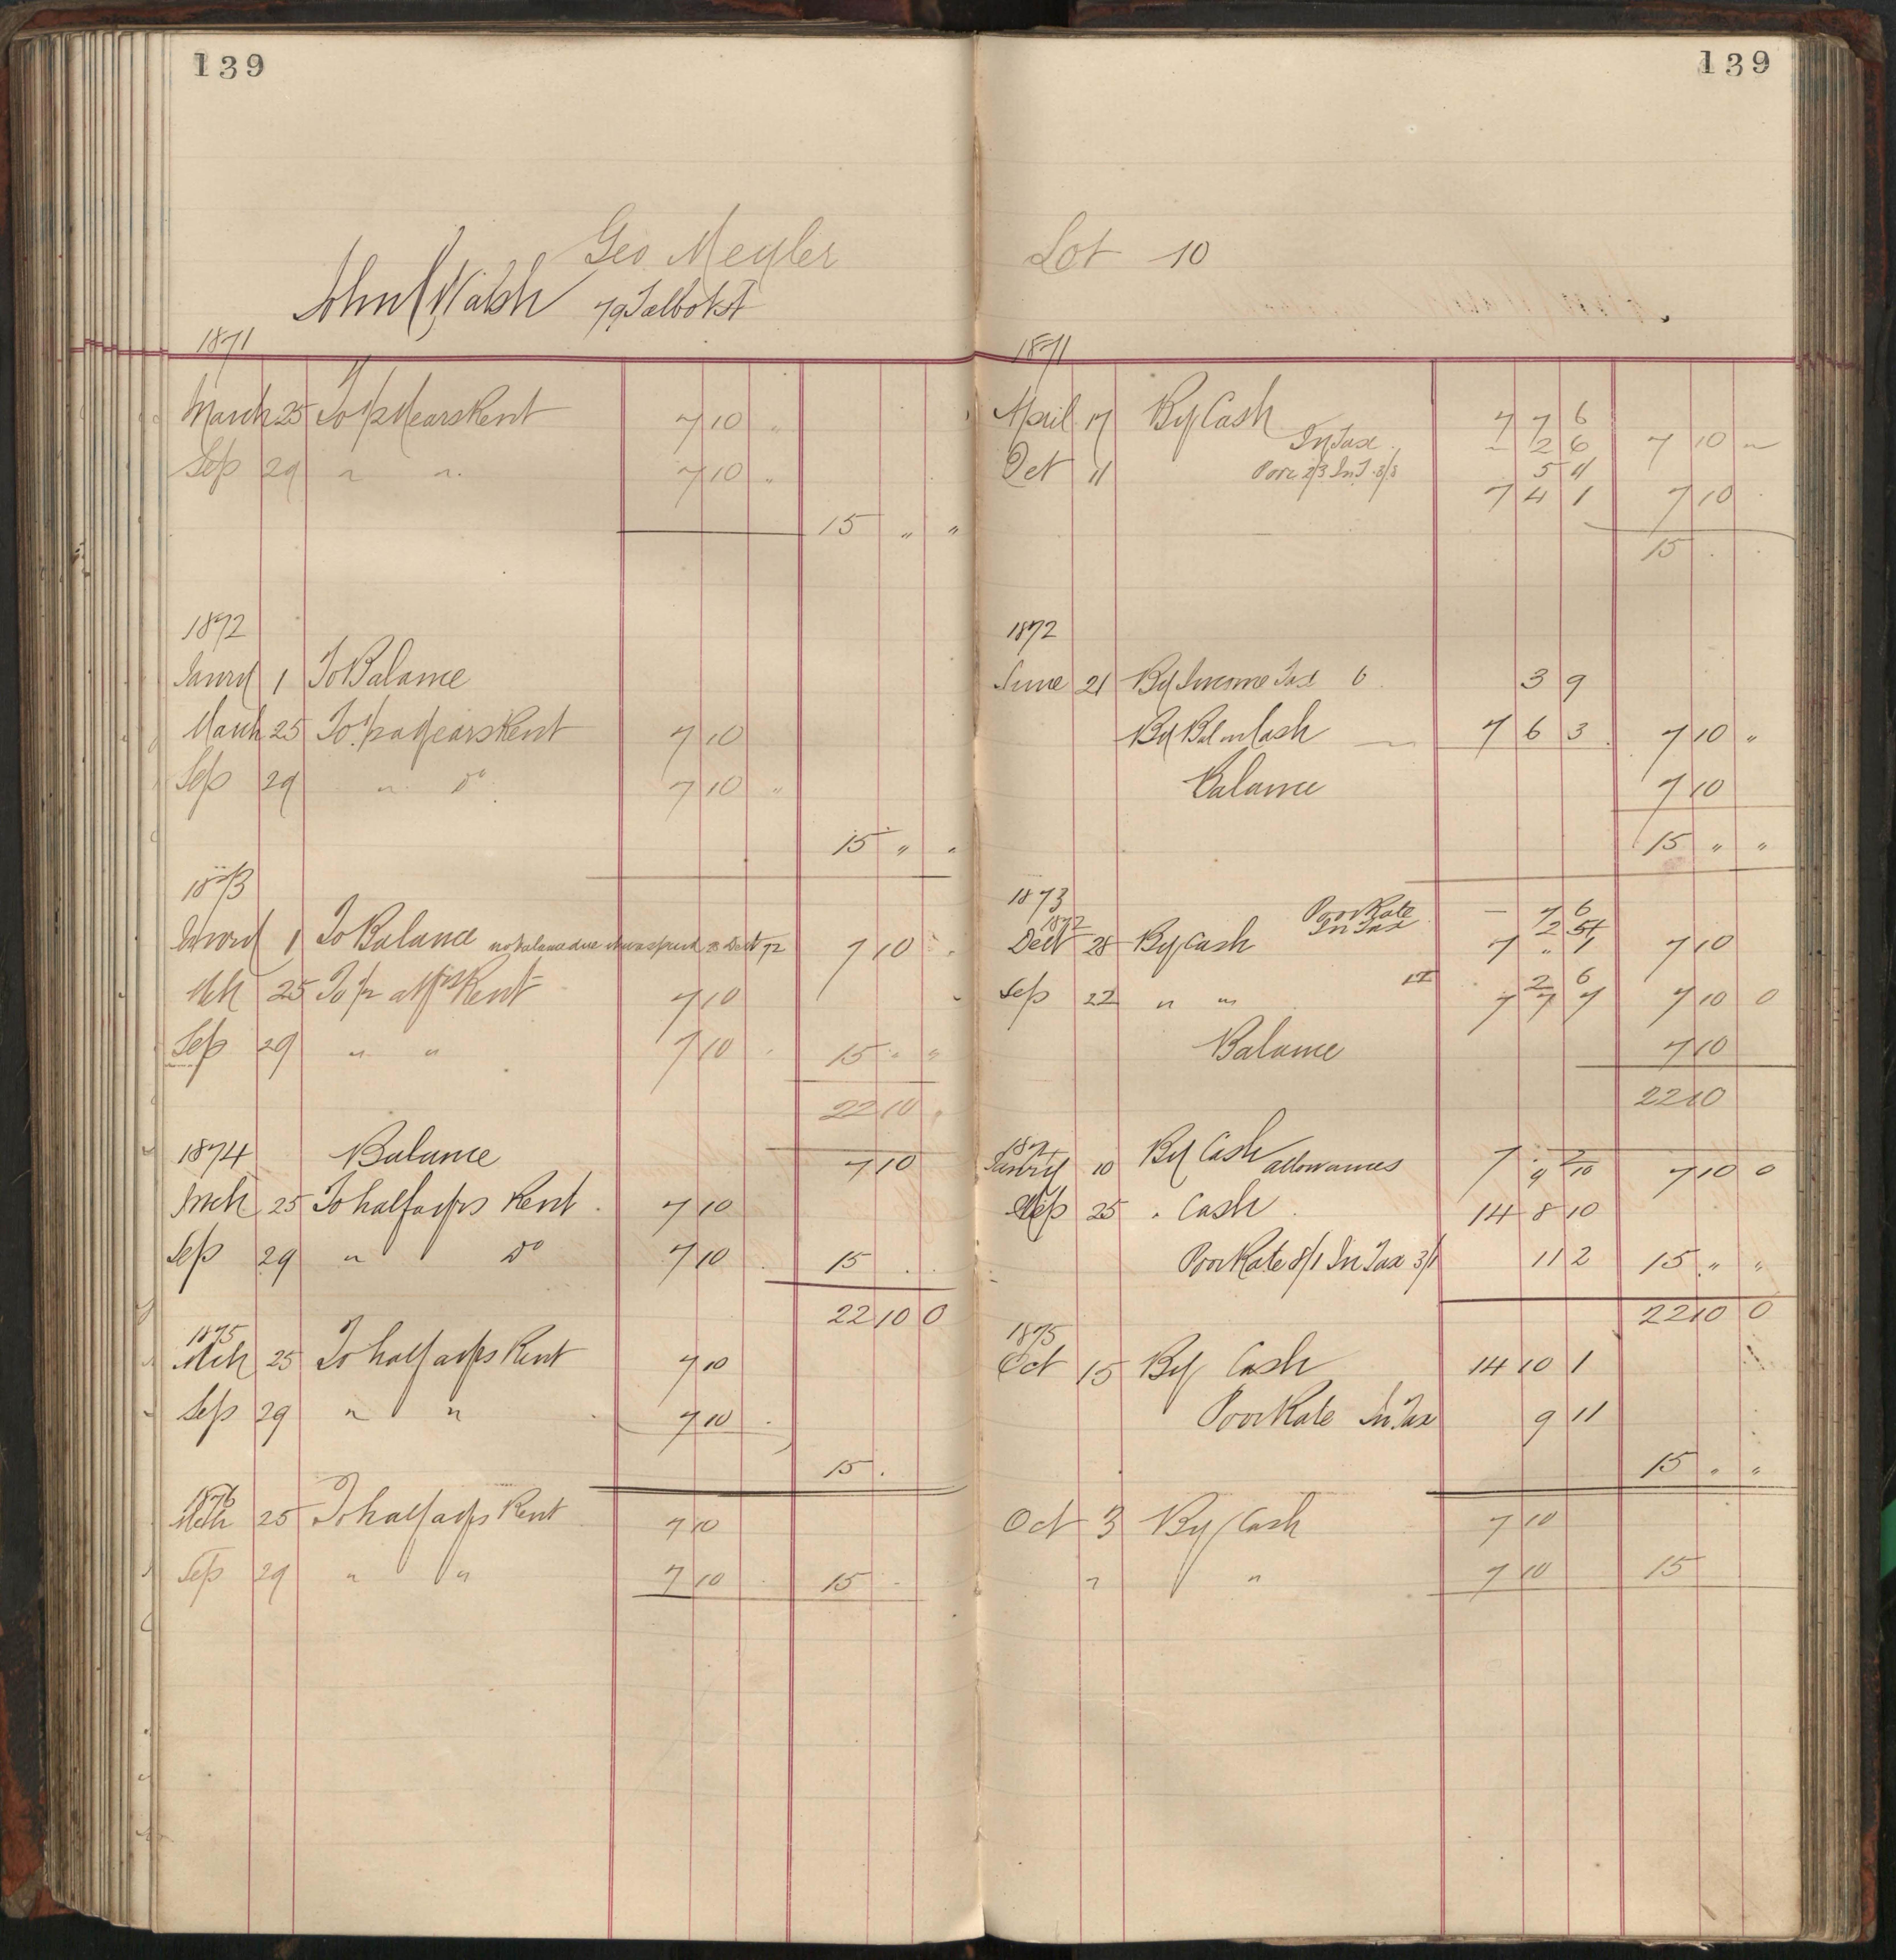 139
Geo Meyler
John Walsh 79 Talbot St
1871
March 25 To 1/2 Years Rent 7 10 "
Sep 29 " " 7 10 "
15 " "
1872
Janry 1 To Balance
March 25 To 1/2 a Years Rent 7 10
Sep 29 " Do 7 10 "
15 " "
1873
Janry 1 To Balance no balance due 28 Dect 72 7 10
Mch 25 To 1/2 a Yrs Rent 7 10
Sep 29 " " 7 10 15 " "
22 10
1874 Balance 7 10
Mch 25 To half a yrs Rent 7 10
Sep 29 " Do 7 10 15
22 10 0
1875
Mch 25 To half a yrs Rent 7 10
Sep 29 " " 7 10
15
1876
Mch 25 To half a yrs Rent 7 10
Sep 29 " " 7 10 15
139
Lot 10
1871
April 17 By Cash 7 7 6
In Tax 2 6 7 10
Oct 11 2/3 In T. 3/8 5 11
7 4 1 7 10
15
1872
June 21 By Income Tax 6 3 9
By Bal in Cash 7 6 3 7 10 "
Balance 7 10
15 " "
1873
Poor Rate 7 6
1872 In Tax 2 5
Dect 28 By Cash 7 " 1 7 10
IT 2 6
Sep 22 " " 7 7 7 10 0
Balance 7 10
22 10
Janry 10 By Cash allowances 7 9 10 7 10 0
Sep 25 . Cash 14 8 10
Poor Rate 8/1 In Tax 3/1 11 2 15 " "
22 10 0
1875
Oct 15 By Cash 14 10 1
Poor Rate In. Tax 9 11
15 " "
Oct 3 By Cash 7 10
" " 7 10 15